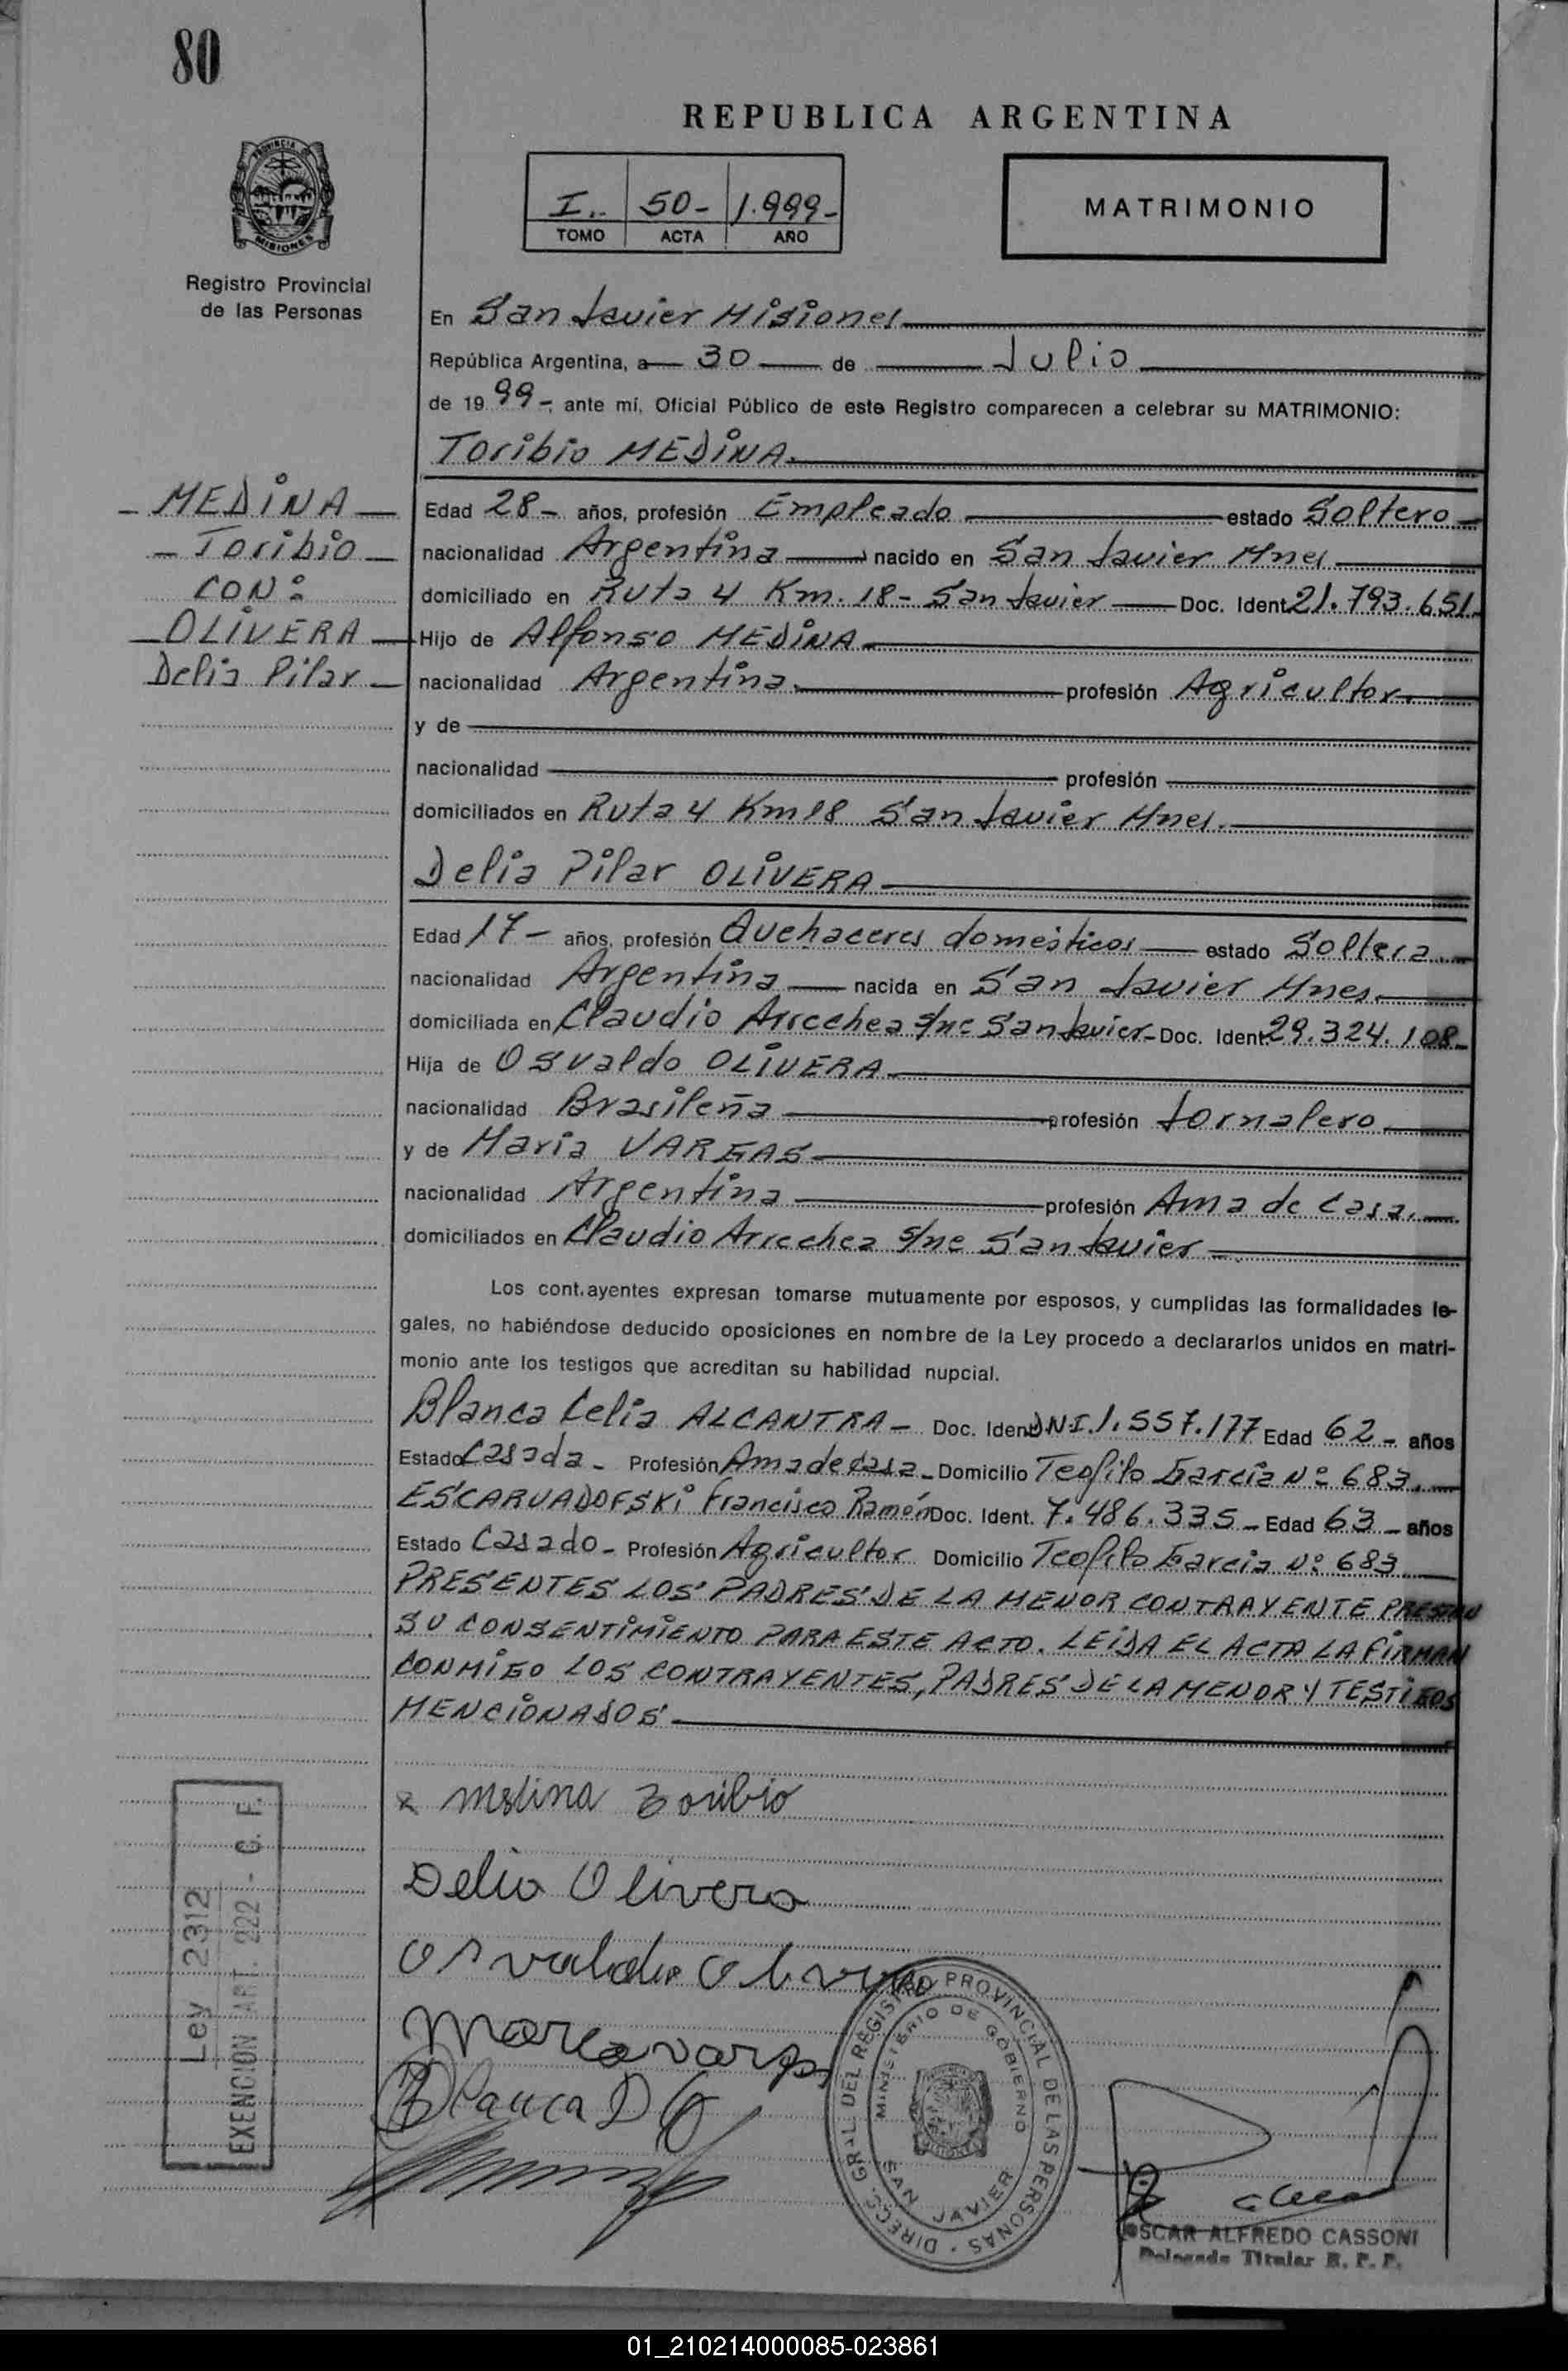 80
REPUBLICA ARGENTINA
I.- 50- 1.999-
TOMO ACTA AÑO
MATRIMONIO
PROVINCIA DE MISIONES
Registro Provincial
de las Personas
En San Javier Misiones
República Argentina, a 30 de Julio
de 1999-, ante mí, Oficial Público de este Registro comparecen a celebrar su MATRIMONIO:
Toribio MEDINA.
- MEDINA -
- Toribio -
CON:
- OLIVERA -
Delia Pilar -
Edad 28- años, profesión Empleado estado Soltero-
nacionalidad Argentina nacido en San Javier Mnes
domiciliado en Ruta 4 Km. 18- San Javier Doc. Ident. 21.793.651.
Hijo de Alfonso MEDINA
nacionalidad Argentina. profesión Agricultor.
y de
nacionalidad profesión
domiciliados en Ruta 4 Km 18 San Javier Mnes.
Delia Pilar OLIVERA
Edad 17- años, profesión Quehaceres domésticos estado Soltera.
nacionalidad Argentina nacida en San Javier Mnes.
domiciliada en Claudio Arrechea s/ne San Javier- Doc. Ident. 29.324.108-
Hija de Osvaldo OLIVERA
nacionalidad Brasileña profesión Jornalero
y de Maria VARGAS
nacionalidad Argentina profesión Ama de Casa.
domiciliados en Claudio Arrechea s/ne San Javier
Los cont.ayentes expresan tomarse mutuamente por esposos, y cumplidas las formalidades le-
gales, no habiéndose deducido oposiciones en nombre de la Ley procedo a declararlos unidos en matri-
monio ante los testigos que acreditan su habilidad nupcial.
Blanca Celia ALCANTRA- Doc. Ident. DNI.1.557.177 Edad 62- años
Estado Casada- Profesión Ama de casa- Domicilio Teofilo Garcia Nº 683.
ESCARVADOFSKI Francisco Ramón Doc. Ident. 7.486.335- Edad 63- años
Estado Casado- Profesión Agricultor Domicilio Teofilo Garcia Nº 683
PRESENTES LOS PADRES DE LA MENOR CONTRAAYENTE PRESTAN
SU CONSENTIMIENTO PARA ESTE ACTO. LEIDA EL ACTA LA FIRMAN
CONMIGO LOS CONTRAYENTES, PADRES DE LA MENOR Y TESTIGOS
MENCIONADOS
x Medina Toribio
Delia Olivera
Osvaldo Olivera
Maria Vargas
Blanca
Ley 2312
EXENCION ART. 222 - C. F.
DIREC. GRAL. DEL REGISTRO PROVINCIAL DE LAS PERSONAS
MINISTERIO DE GOBIERNO
SAN JAVIER
OSCAR ALFREDO CASSONI
Delegado Titular R. P. P.
01_210214000085-023861